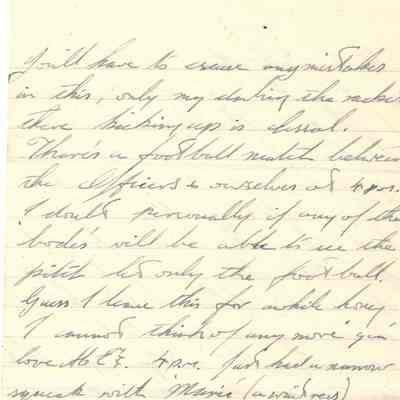 You'll have to excuse any mistakes
in this, only my darling the racket
there kicking up is dismal.
There's a football match between
the Officers & ourselves at 4 pm.
I doubt personally if any of the
bodes will be able to see the
pitch let only the football.
Guess I leave this for awhile honey
I cannot think of any more
love 4 pm. Just had a narrow
squeak with Marie (a waitress)